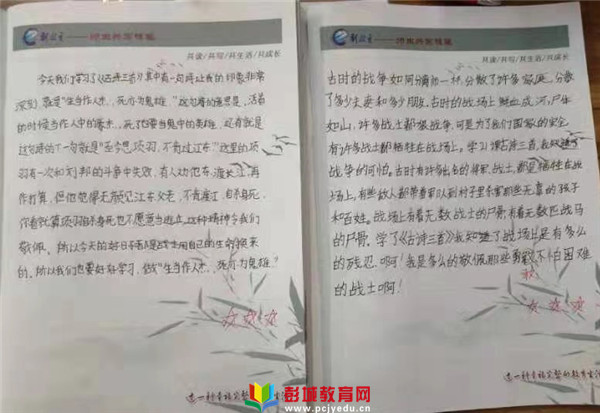 共读/共写/共生活/共成长
今天我们学习了《古诗三首》其中有一句诗让我的印象非常
深刻,就是"生当作人杰,死亦为鬼雄。"这句诗的意思是,活着
的时候当作人中的豪杰,死了也要当鬼中的英雄,还有就是
这句诗的下一句就是"至今思项羽,不肯过江东。"这里的项
羽有一次和刘邦的斗争中失败,有人劝他东渡长江,再
作打算,但他觉得无颜见江东父老,不肯渡江自杀身死,
你看就算项羽自杀身死也不愿意当逃兵,这种精神令我们
敬佩。所以今天的好日子都是战士用自己的生命换来
的。所以我们也要好好学习,做"生当作人杰,死亦为鬼雄。"
选一种幸福完整的教育生活
共读/共写/共生活/共成长
古时的战争如同分离的一杯,分散了许多家庭,分散
了多少夫妻和多少朋友,古时的战场上鲜血成河,尸体
如山,许多战士都很战争,可是为了我们国家的安全
有许多战士都牺牲在战场上,学习古诗三首,我知道了
战争的可怕。当时有许多出名的将军,战士,都是牺牲在战
场上,有些敌人都带着军队到村子里杀害那些无辜的孩子
和百姓。战场上有着无数战士的尸骨有着无数匹战马
的尸骨。学了《古诗三首》我知道了战场上是有多么
的残忍。啊!我是多么的敬佩那些勇敢不怕困难
的战士啊!
这一种幸福完整的教育生活
彭城教育网
www.pcjyedu.cn